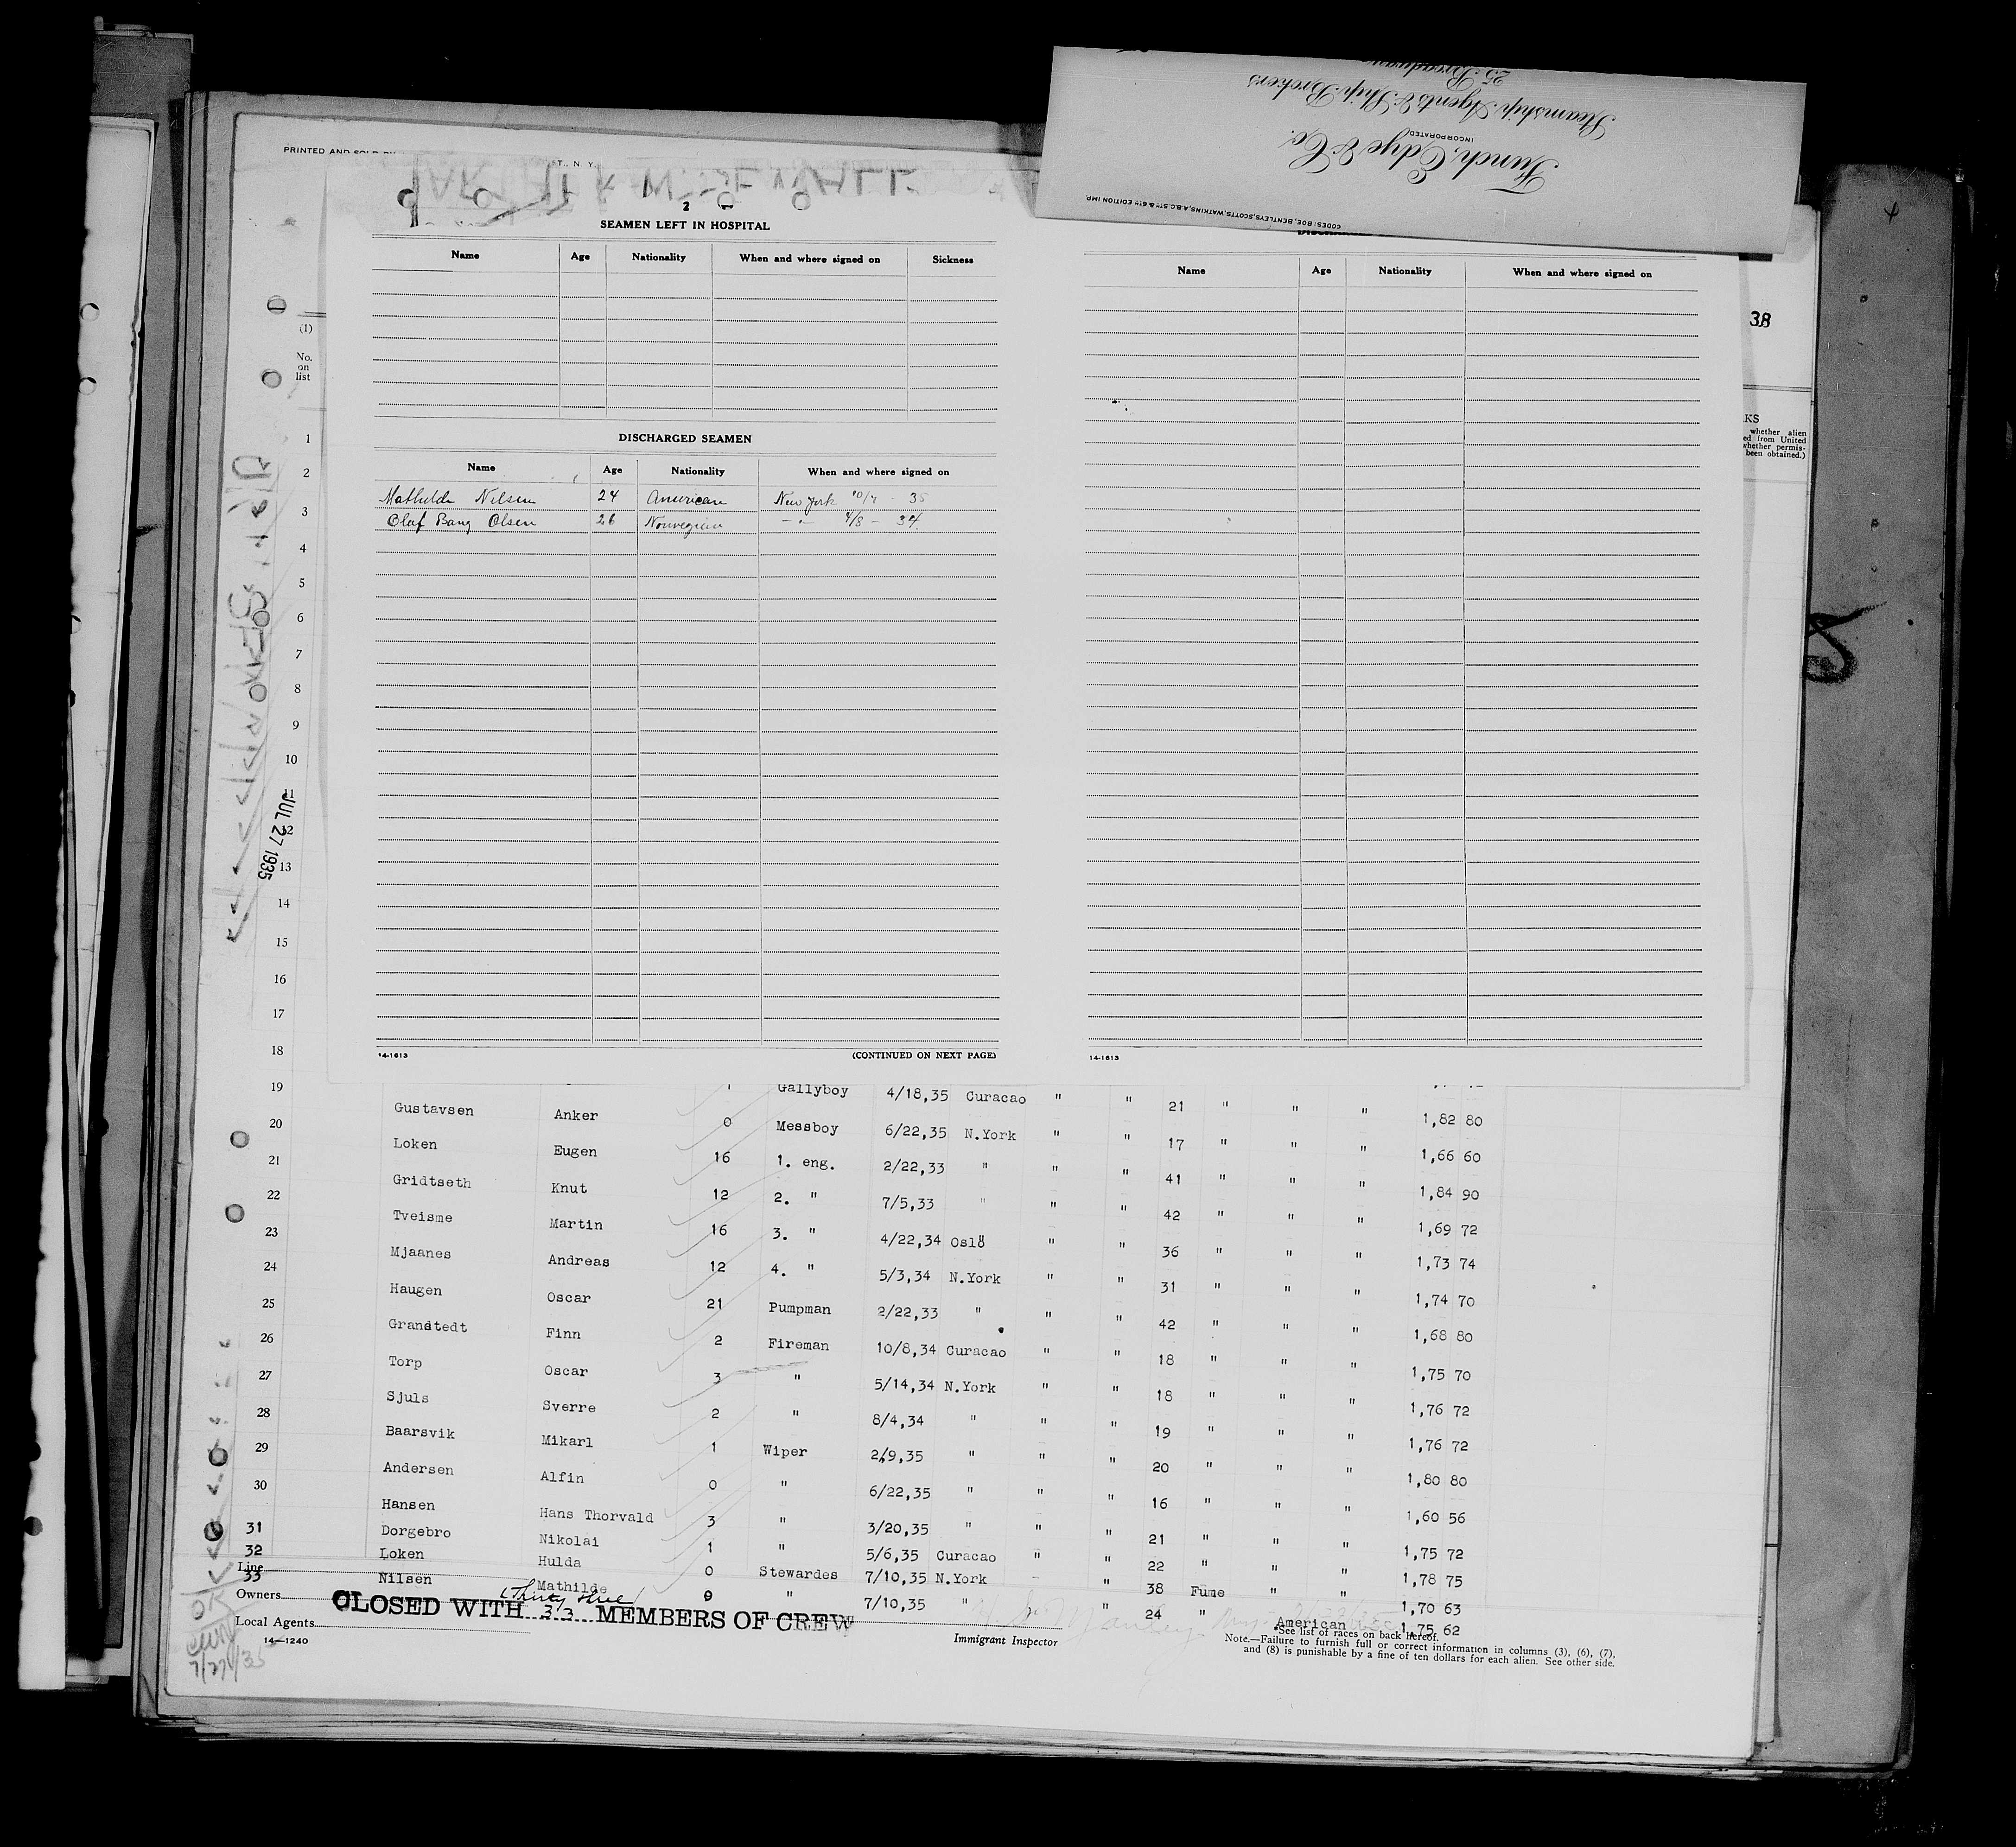 Funch, Edye & Co.
INCORPORATED
Steamship Agents & Ship Brokers
25 Broadway
CODES: BOE, BENTLEYS, SCOTTS, WATKINS, A.B.C. 5TH & 6TH EDITION IMP.
PRINTED AND SOLD BY
ST., N. Y.
2
SEAMEN LEFT IN HOSPITAL
Name Age Nationality When and where signed on Sickness
Name Age Nationality When and where signed on
38
(1)
No.
on
list
KS
whether alien
ed from United
whether permis-
been obtained.)
DISCHARGED SEAMEN
Name Age Nationality When and where signed on
Mathilde Nilsen 24 American New York 10/7 - 35
Olaf Bang Olsen 26 Norwegian -"- 4/8 - 34.
1
2
3
4
5
6
7
8
9
10
11
12
13
14
15
16
17
18
JUL 27 1935
14-1613 (CONTINUED ON NEXT PAGE)
14-1613
19 Gustavsen Anker 1 Gallyboy 4/18,35 Curacao " " 21 " " " 1,82 80
20 Loken Eugen 0 Messboy 6/22,35 N.York " " 17 " " " 1,66 60
21 Gridtseth Knut 16 1. eng. 2/22,33 " " " 41 " " " 1,84 90
22 Tveisme Martin 12 2. " 7/5,33 " " " 42 " " " 1,69 72
23 Mjaanes Andreas 16 3. " 4/22,34 Oslo " " 36 " " " 1,73 74
24 Haugen Oscar 12 4. " 5/3,34 N.York " " 31 " " " 1,74 70
25 Grandtedt Finn 21 Pumpman 2/22,33 " " " 42 " " " 1,68 80
26 Torp Oscar 2 Fireman 10/8,34 Curacao " " 18 " " " 1,75 70
27 Sjuls Sverre 3 " 5/14,34 N.York " " 18 " " " 1,76 72
28 Baarsvik Mikarl 2 " 8/4,34 " " " 19 " " " 1,76 72
29 Andersen Alfin 1 Wiper 2/9,35 " " " 20 " " " 1,80 80
30 Hansen Hans Thorvald 0 " 6/22,35 " " " 16 " " " 1,60 56
31 Dorgebro Nikolai 3 " 3/20,35 " " " 21 " " " 1,75 72
32 Loken Hulda 1 " 5/6,35 Curacao " " 22 " " " 1,78 75
33 Nilsen Mathilde 0 Stewardes 7/10,35 N.York " 38 Fume " " 1,70 63
0 " 7/10,35 " " " 24 " American 1,75 62
Line
Owners
Local Agents
14—1240
(Thirty three)
CLOSED WITH 33 MEMBERS OF CREW
Immigrant Inspector
See list of races on back hereof.
Note.—Failure to furnish full or correct information in columns (3), (6), (7),
and (8) is punishable by a fine of ten dollars for each alien. See other side.
OK
7/27/35